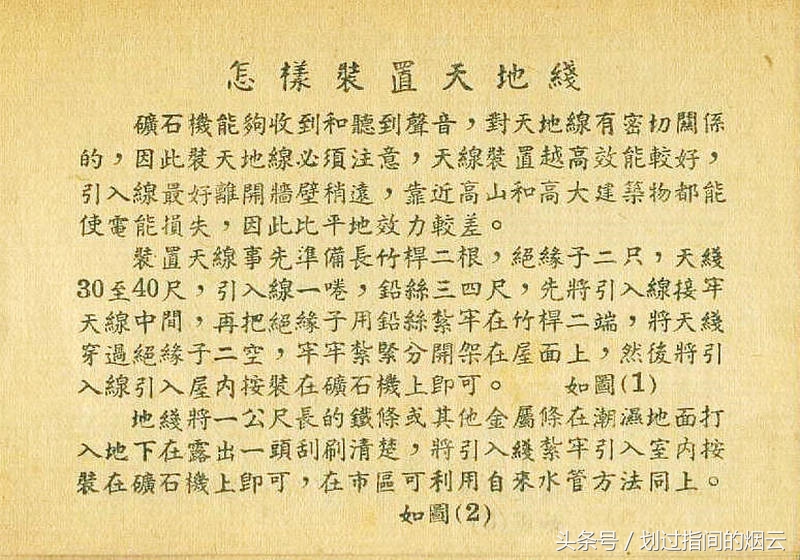 怎樣裝置天地綫
礦石機能夠收到和聽到聲音，對天地線有密切關係
的，因此裝天地線必須注意，天線裝置越高效能較好，
引入線最好離開牆壁稍遠，靠近高山和高大建築物都能
使電能損失，因此比平地效力較差。
裝置天線事先準備長竹桿二根，絕緣子二只，天綫
30至40尺，引入線一捲，鉛絲三四尺，先將引入線接牢
天線中間，再把絕緣子用鉛絲紮牢在竹桿二端，將天綫
穿過絕緣子二空，牢牢紮緊分開架在屋面上，然後將引
入線引入屋內按裝在礦石機上即可。 如圖(1)
地綫將一公尺長的鐵條或其他金屬條在潮濕地面打
入地下在露出一頭刮刷清楚，將引入綫紮牢引入室内按
裝在礦石機上即可，在市區可利用自來水管方法同上。
如圖(2)
头条号 / 划过指间的烟云